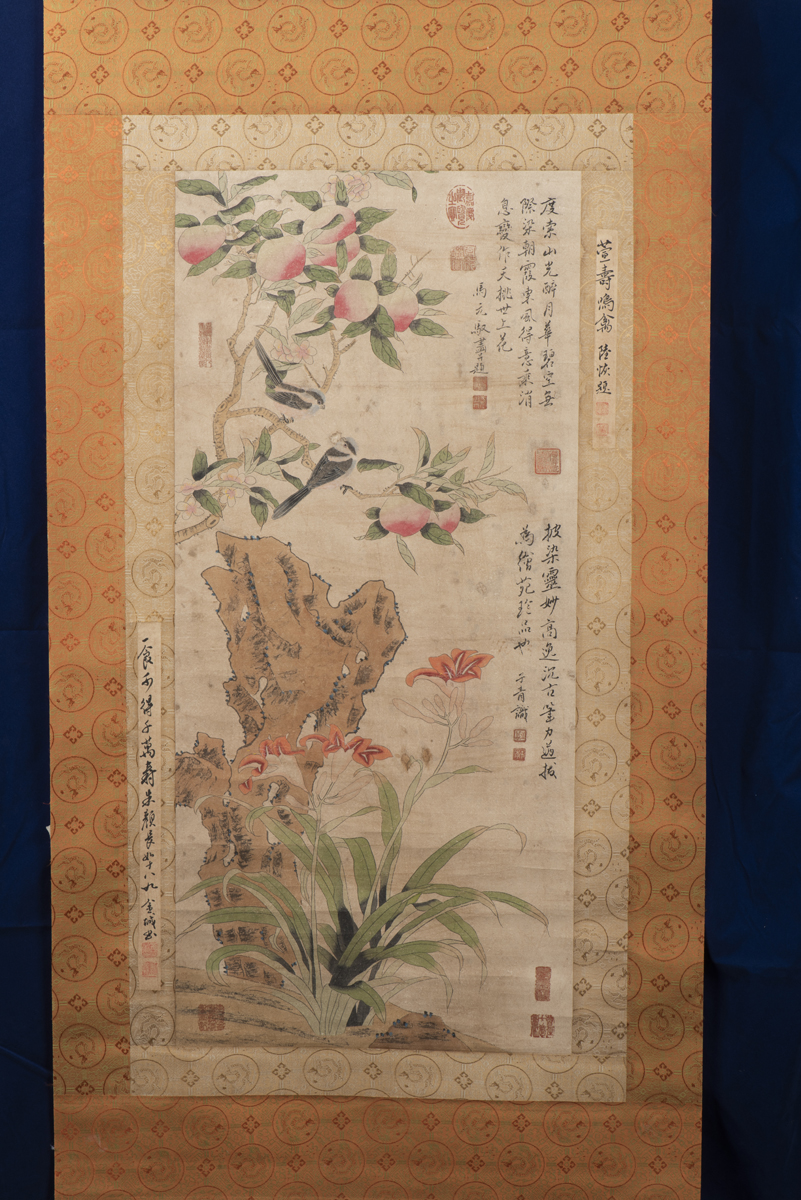 萱壽鳴禽 陸恢題
度索山光醉月華碧空無
際染朝霞東風得意乘消
息變作夭桃世上花
馬元馭畫并題
披染靈妙高逸沉古筆力遒拔
為繪苑珍品也 子青識
一食可得千萬壽朱顏長如十八九 金城書